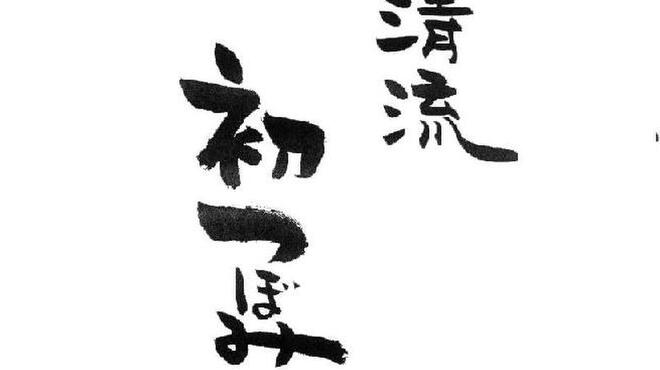 清流
初つぼみ